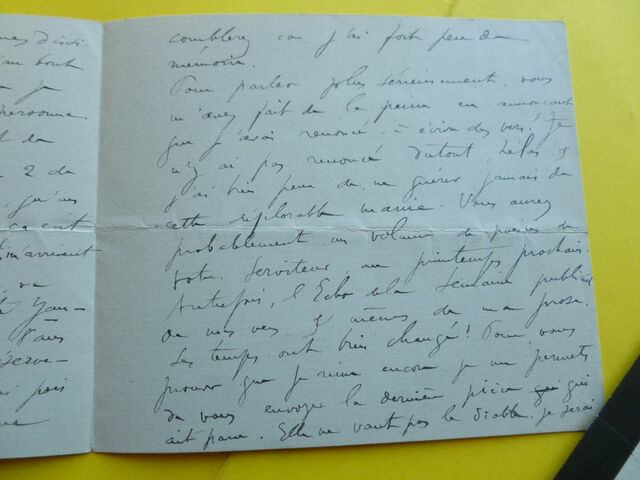 comblerez car j'ai fort peu de
mémoire.
Pour parler plus sérieusement, vous
m'avez fait de la peine en annonçant
que j'avais renoncé à écrire des vers! Je
n'y ai pas renoncé du tout, hélas &
j'ai bien peur de ne guérir jamais de
cette déplorable manie. Vous aurez
probablement un volume de poésies de
votre serviteur au printemps prochain.
Autrefois, l'Echo de la Semaine publiait
de mes vers & même de ma prose.
Les temps ont bien changé! Pour vous
prouver que je rime encore je me permets
de vous envoyer la dernière pièce qui
ait paru. Elle ne vaut pas le diable, je serai
au bout
je
personne.
de
2 de
qu'un
m'arrivent
8 ans
pois